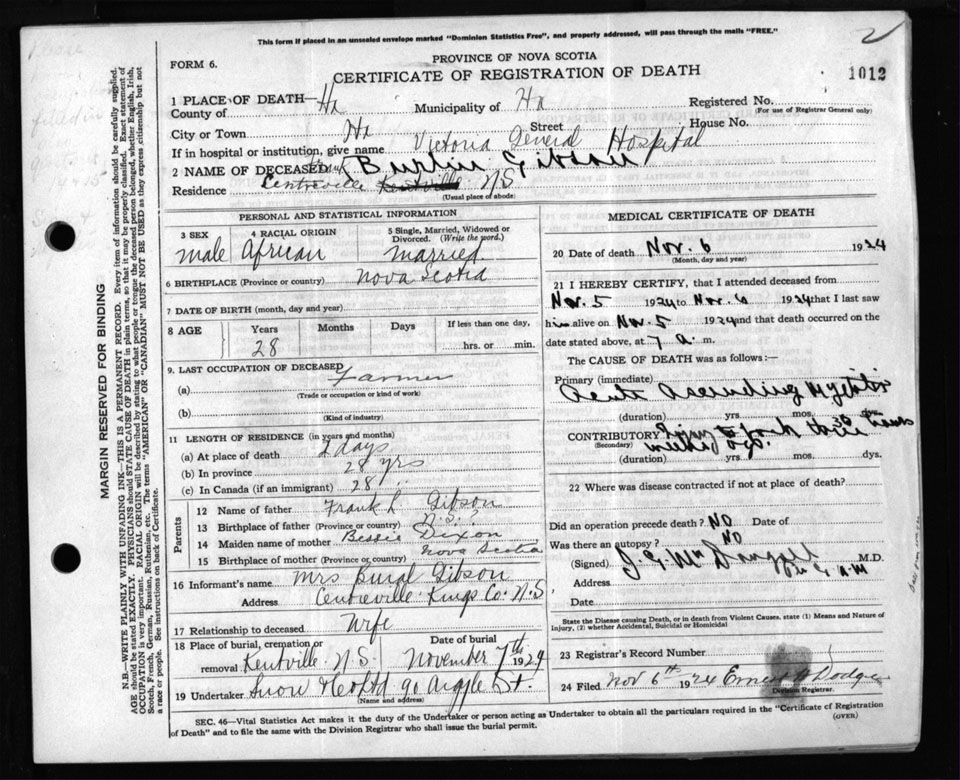 This form if placed in an unsealed envelope marked "Dominion Statistics Free", and properly addressed, will pass through the mails "FREE."
2
FORM 6.
PROVINCE OF NOVA SCOTIA
CERTIFICATE OF REGISTRATION OF DEATH
1012
1 PLACE OF DEATH—
County of Hx Municipality of Hx Registered No.
(For use of Registrar General only)
City or Town Hx Street House No.
If in hospital or institution, give name Victoria General Hospital
2 NAME OF DECEASED Burlin Gibson
Residence Centreville Kentville N.S
(Usual place of abode)
PERSONAL AND STATISTICAL INFORMATION
3 SEX 4 RACIAL ORIGIN 5 Single, Married, Widowed or Divorced. (Write the word.)
male African married
6 BIRTHPLACE (Province or country) Nova Scotia
7 DATE OF BIRTH (month, day and year)
8 AGE Years Months Days If less than one day,
28 hrs. or min.
9. LAST OCCUPATION OF DECEASED
(a) Farmer
(Trade occupation or kind of work)
(b)
(Kind of industry)
11 LENGTH OF RESIDENCE (in years and months)
(a) At place of death 2 days
(b) In province 28 yrs
(c) In Canada (if an immigrant) 28 "
Parents
12 Name of father Frank L Gibson
13 Birthplace of father (Province or country) N.S.
14 Maiden name of mother Bessie Dixon
15 Birthplace of mother (Province or country) Nova Scotia
16 Informant's name Mrs Gibson
Address Centreville Kings Co. N.S
17 Relationship to deceased Wife
18 Place of burial, cremation or removal Kentville N.S Date of burial November 7th 1924
19 Undertaker Snow & Co Ltd 90 Argyle St.
(Name and address)
MEDICAL CERTIFICATE OF DEATH
20 Date of death Nov. 6 1924
(Month, day and year)
21 I HEREBY CERTIFY, that I attended deceased from
Nov. 5 1924 to Nov. 6 1924 that I last saw
him alive on Nov. 5 1924 and that death occurred on the
date stated above, at 7 a. m.
The CAUSE OF DEATH was as follows:—
Primary (immediate)
Acute Ascending Myelitis
(duration) yrs. mos. dys.
CONTRIBUTORY Injury to back three weeks
(Secondary)
(duration) yrs. mos. dys.
22 Where was disease contracted if not at place of death?
Did an operation precede death? NO Date of
Was there an autopsy? NO
(Signed) M.D.
Address
Date
State the Disease causing Death, or in death from Violent Causes, state (1) Means and Nature of
Injury, (2) whether Accidental, Suicidal or Homicidal
23 Registrar's Record Number
24 Filed Nov 6th 1924 Ernest Dodge
Division Registrar.
SEC. 46—Vital Statistics Act makes it the duty of the Undertaker or person acting as Undertaker to obtain all the particulars required in the "Certificate of Registration
of Death" and to file the same with the Division Registrar who shall issue the burial permit.
(OVER)
MARGIN RESERVED FOR BINDING
N.B.—WRITE PLAINLY WITH UNFADING INK—THIS IS A PERMANENT RECORD. Every item of information should be carefully supplied.
AGE should be stated EXACTLY. PHYSICIANS should STATE CAUSE OF DEATH in plain terms, so that it may be properly classified. Exact statement of
OCCUPATION is very important. RACIAL ORIGIN will be described by stating to what people or tongue the deceased person belonged, whether English, Irish,
Scotch, French, German, Russian, Ruthenian, etc. The terms "AMERICAN" OR "CANADIAN" MUST NOT BE USED as they express citizenship but not
a race or people. See instructions on back of Certificate.